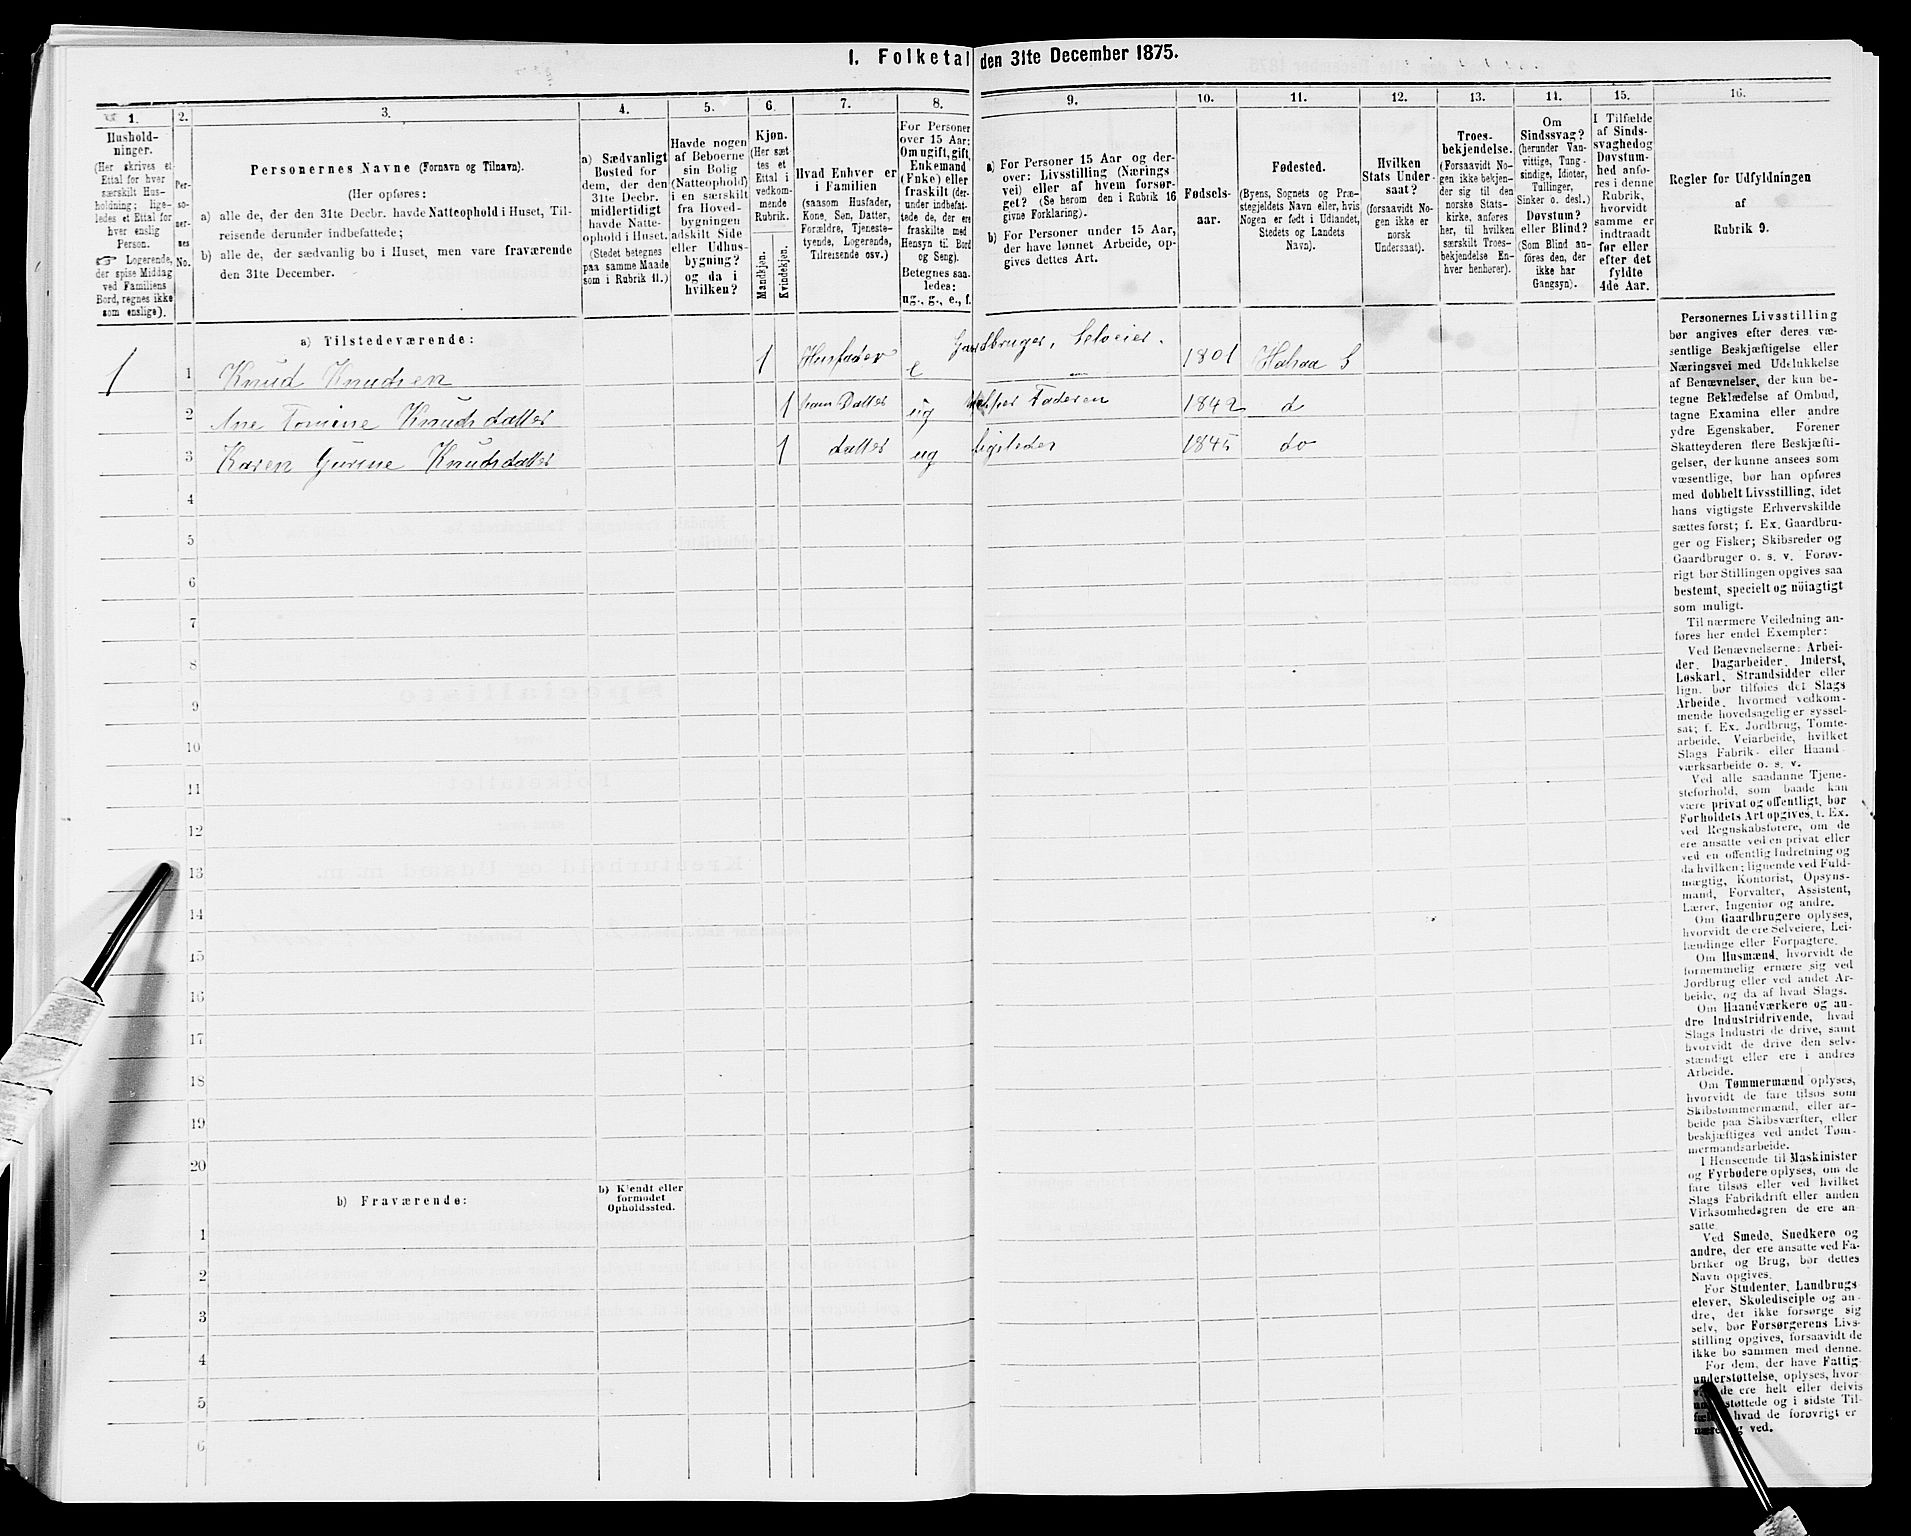 I. Folketal den 31te December 1875.
1.
Hushold-
ninger.
(Her skrives et
Ettal for hver
særskilt Hus-
holdning; lige-
ledes et Ettal for
hver enslig
Person.
☞ Logerende,
der spise Middag
ved Familiens
Bord, regnes ikke
som enslige).
2.
Per-
so-
ner-
nes
No.
3.
Personernes Navne (Fornavn og Tilnavn).
(Her opføres:
a) alle de, der den 31te Decbr. havde Natteophold i Huset, Til-
reisende derunder indbefattede;
b) alle de, der sædvanlig bo i Huset, men vare fraværende
den 31te December.
4.
a) Sædvanligt
Bosted for
dem, der den
31te Decbr.
midlertidigt
havde Natte-
ophold i Huset.
(Stedet betegnes
paa samme Maade
som i Rubrik 11.)
5.
Havde nogen
af Beboerne
sin Bolig
(Natteophold)
i en særskilt
fra Hoved-
bygningen
adskilt Side
eller Udhus-
bygning?
og da i
hvilken?
6.
Kjøn.
(Her sæt-
tes et
Ettal i
vedkom-
mende
Rubrik.
Mandkjøn.
Kvindekjøn.
7.
Hvad Enhver er
i Familien
(saasom Husfader,
Kone, Søn, Datter,
Forældre, Tjeneste-
tyende, Logerende,
Tilreisende osv.)
8.
For Personer
over 15 Aar:
Om ugift, gift,
Enkemand
(Enke) eller
fraskilt (der-
under indbefat-
tede de, der ere
fraskilte med
Hensyn til Bord
og Seng).
Betegnes saa-
ledes:
ug., g., e., f.
9.
a) For Personer 15 Aar og der-
over: Livsstilling (Nærings
vei) eller af hvem forsør-
get? (Se herom den i Rubrik 16
givne Forklaring).
b) For Personer under 15 Aar,
der have lønnet Arbeide, op-
gives dettes Art.
10.
Fødsels-
aar.
11.
Fødested.
(Byens, Sognets og Præ-
stegjeldets Navn eller, hvis
Nogen er født i Udlandet,
Stedets og Landets
Navn).
12.
Hvilken
Stats Under-
saat?
(forsaavidt No-
gen ikke er
norsk
Undersaat).
13.
Troes-
bekjendelse.
(Forsaavidt No-
gen ikke bekjen-
der sig til den
norske Stats-
kirke, anføres
her, til hvilken
særskilt Troes-
bekjendelse En-
hver henhører).
14.
Om
Sindssvag?
(herunder Van-
vittige, Tung-
sindige, Idioter,
Tullinger,
Sinker o. desl.)
Døvstum?
eller Blind?
(Som Blind an-
føres den, der
ikke har
Gangsyn).
15.
I Tilfælde
af Sinds-
svaghed og
Døvstum-
hed anfø-
res i denne
Rubrik,
hvorvidt
samme er
indtraadt
før eller
efter det
fyldte
4de Aar.
16.
Regler for Udfyldningen
af
Rubrik 9.
a) Tilstedeværende:
1 1 Knud Knudsen 1 Husfader e Gaardbruger, Selveier. 1801 Halsaa S
2 Ane Tomine Knudsdatter 1 hans Datter ug Faderen 1842 d
3 Karen Gurine Knudsdatter 1 datter ug ligeledes 1845 do
4
5
6
7
8
9
10
11
12
13
14
15
16
17
18
19
20
b) Fraværende:
b) Kjendt eller
formodet
Opholdssted.
1
2
3
4
5
6
Personernes Livsstilling
bør angives efter deres væ-
sentlige Beskjæftigelse eller
Næringsvei med Udelukkelse
af Benævnelser, der kun be-
tegne Beklædelse af Ombud,
tagne Examina eller andre
ydre Egenskaber. Forener
Skatteyderen flere Beskjæfti-
gelser, der kunne ansees som
væsentlige, bør han opføres
med dobbelt Livsstilling, idet
hans vigtigste Erhvervskilde
sættes først; f. Ex. Gaardbru-
ger og Fisker; Skibsreder og
Gaardbruger o. s. v. Forøv-
rigt bør Stillingen opgives saa
bestemt, specielt og nöiagtigt
som muligt.
Til nærmere Veiledning an-
føres her endel Exempler:
Ved Benævnelserne: Arbei-
der, Dagarbeider, Inderst,
Løskarl, Strandsidder eller
lign. bør tilføies det Slags
Arbeide, hvormed vedkom-
mende hovedsagelig er syssel-
sat; f. Ex. Jordbrug, Tomte-
arbeide, Veiarbeide, hvilket
Slags Fabrik- eller Haand-
værksarbeide o. s. v.
Ved alle saadanne Tjene-
steforhold, som baade kan
være privat og offentligt, bør
Forholdets Art opgives, f. Ex.
ved Regnskabsførere, om de
ere ansatte ved en privat eller
ved en offentlig Indretning og
da hvilken; lignende ved Fuld-
mægtig, Kontorist, Opsyns-
mand, Forvalter, Assistent,
Lærer, Ingeniør og andre.
Om Gaardbrugere oplyses,
hvorvidt de ere Selveiere, Lei-
lændinge eller Forpagtere.
Om Husmænd, hvorvidt de
fornemmelig ernære sig ved
Jordbrug eller ved andet Ar-
beide, og da af hvad Slags.
Om Haandværkere og an-
dre Industridrivende, hvad
Slags Industri de drive, samt
hvorvidt de drive den selv-
stændigt eller ere i andres
Arbeide.
Om Tømmermænd oplyses,
hvorvidt de fare tilsøs som
Skibstømmermænd, eller ar-
beide paa Skibsværfter, eller
beskjæftiges ved andet Tøm-
mermandsarbeide.
I Henseende til Maskinister
og Fyrbødere oplyses, om de
fare tilsøs eller ved hvilket
Slags Fabrikdrift eller anden
Virksomhedsgren de ere an-
satte.
Ved Smede, Snedkere og
andre, der ere ansatte ved Fa-
briker og Brug, bør dettes
Navn opgives.
For Studenter, Landbrugs-
elever, Skoledisciple og an-
dre, der ikke forsørge sig
selv, bør Forsørgerens Livs-
stilling opgives, forsaavidt de
ikke bo sammen med denne.
For dem, der have Fattig-
understøttelse, oplyses, hvor-
de ere helt eller delvis
støttede og i sidste Til-
hvad de forøvrigt er
ved.